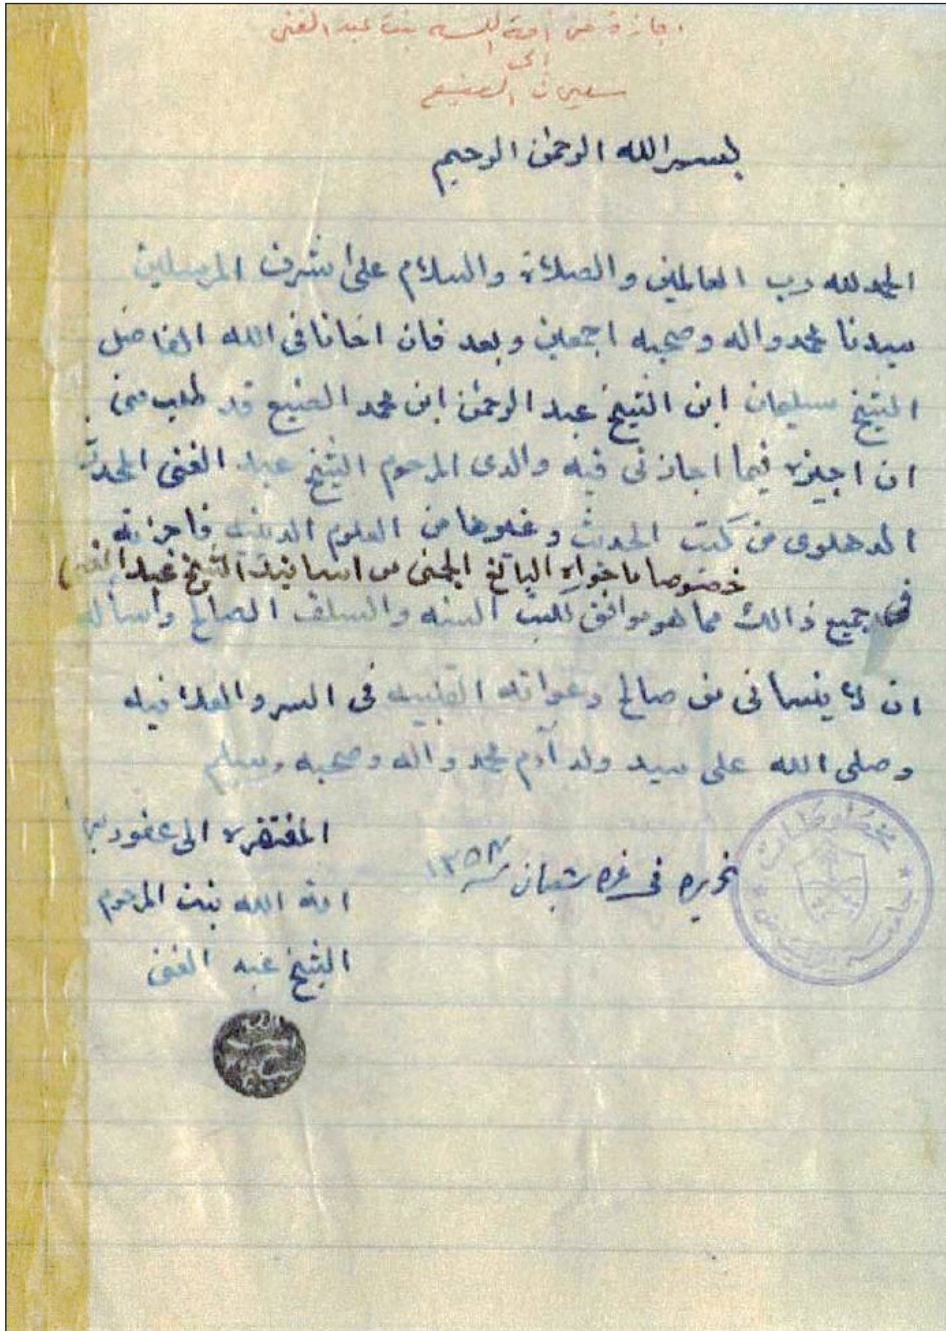 اجازة من أمة الله بنت عبد الغني
إلى
سليمان الصنيع
بسم الله الرحمن الرحيم
الحمد لله رب العالمين والصلاة والسلام على اشرف المرسلين
سيدنا محمد واله وصحبه اجمعين وبعد فان اخانا في الله الفاضل
الشيخ سليمان ابن الشيخ عبد الرحمن ابن محمد الصنيع قد طلب منى
ان اجيزه فيما اجازنى فيه والدى المرحوم الشيخ عبد الغنى المحدث
الدهلوى من كتب الحديث وغيرها من العلوم الدينيه فاجزته
خصوصا ما حواه اليانع الجنى من اسانيد الشيخ عبد الغنى
فى جميع ذالك مما هو موافق للكتب السنه والسلف الصالح واساله
ان لا ينسانى من صالح دعواته الطيبه فى السر والعلانيه
وصلى الله على سيد ولد آدم محمد واله وصحبه وسلم
المفتقره الى عفو ربها
تحريره فى غره شعبان سنة ١٣٥٧
امة الله بنت المرحوم
الشيخ عبد الغنى
مخطوطات
جامعة الرياض